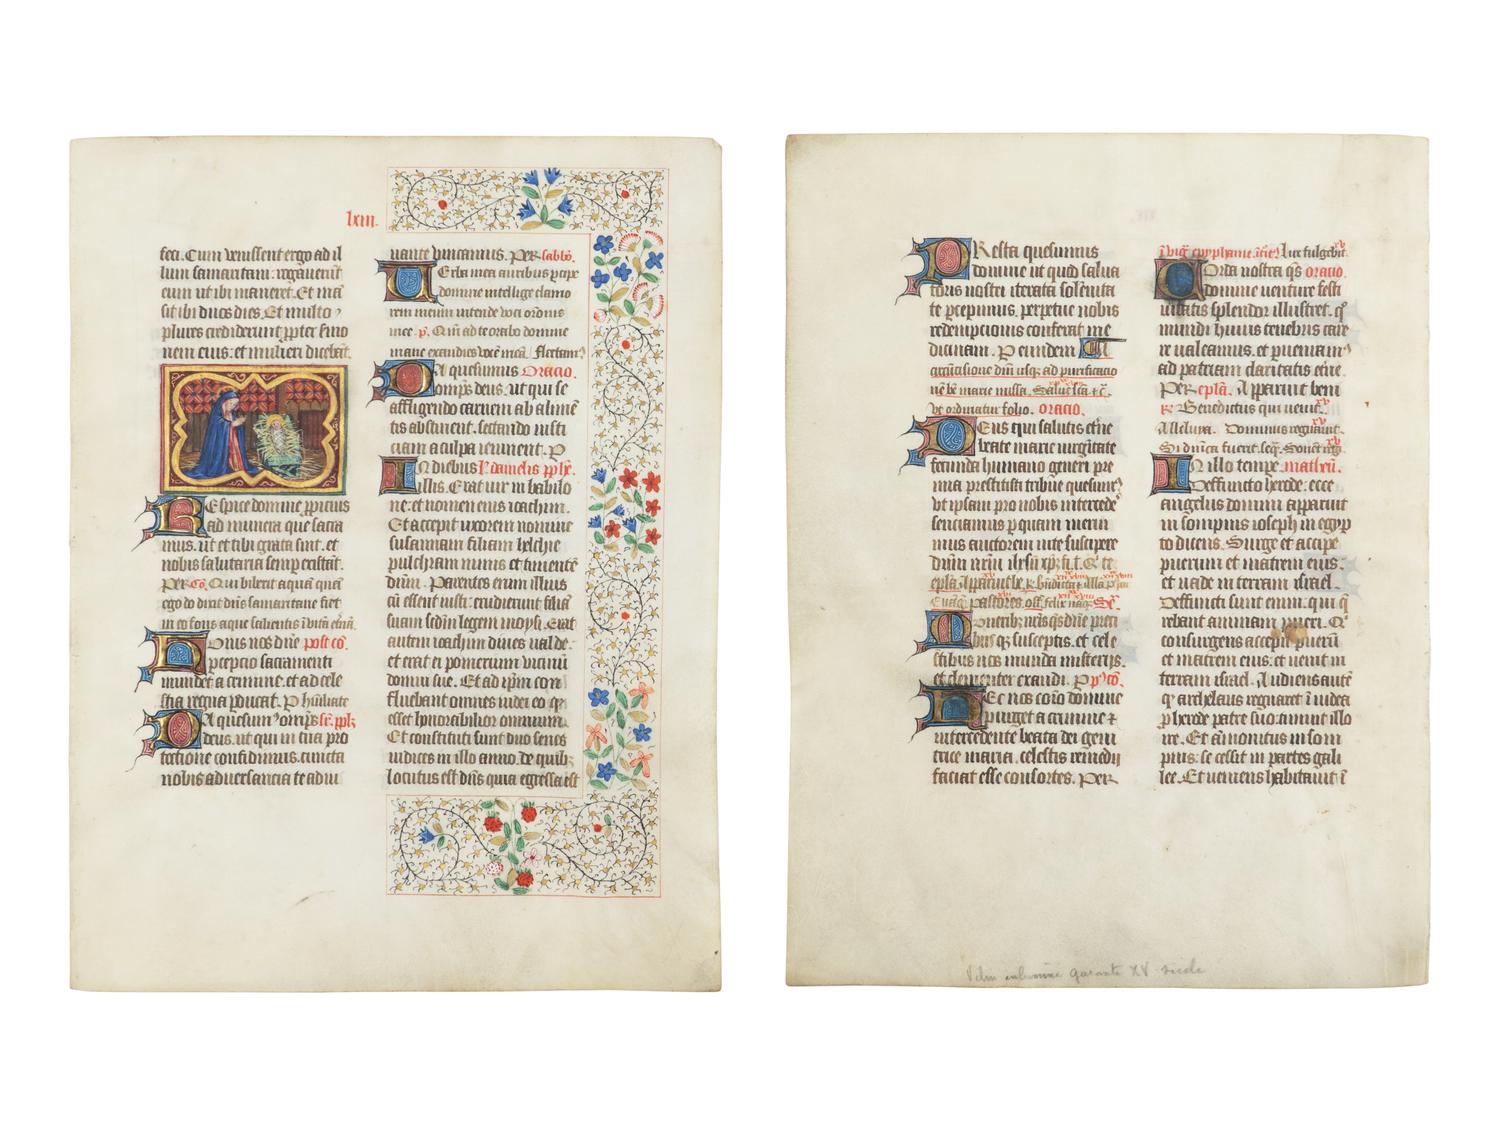 lxiii.
feci. Cum venissent ergo ad il
lum samaritani: rogaverūt
eum ut ibi maneret. Et mā
sit ibi duos dies. Et multo
plures crediderunt ꝓpter sermo
nem eius: et mulieri dicebāt.
Respice domine ꝓpicius
ad munera que sacra
mus. ut et tibi grata sint. et
nobis salutaria semꝑ existāt.
Per Cō. Qui biberit aquā quā
ego do dicit dn̄s samaritane fiet
in eo fons aque salientis
Huius nos dn̄e post cō.
ꝑcepcio sacramenti
mundet a crimine. et ad cele
stia regna ꝑducat. P humiliate
Da quesumꝰ omp̄s sr̄. pp̄lz
deus. ut qui in tua pro
tectione confidimus. cuncta
nobis adversancia te adiu
uante vincamus. Per sabbō.
Verba mea auribus ꝑcipe
domine intellige clamo
rem meum intende voci oronis
mee. p̄. Qm̄ ad te orabo domine
mane exaudies vocē meā. flectam
Da quesumus Oracio.
omp̄s deus. ut qui se
affligendo carnem ab alimē
tis abstinent. sectando iusti
ciam a culpa ieiunent. P
In diebus l. danielis ꝓph.
illis. Erat vir in babilo
ne: et nomen eius ioachim.
Et accepit uxorem nomine
susannam filiam helchie
pulchram nimis et timentē
dn̄um. Parentes enim illius
cū essent iusti: erudierunt filiā
suam sedm̄ legem moysi. Erat
autem ioachim dives valde:
et erat ei pomerium vicinū
domui sue. Et ad ip̄m con
fluebant omnes iudei eo qz
esset honorabilior omnium.
Et constituti sunt duo senes
iudices in illo anno. de quibz
locutus est dn̄s quia egressa est
Presta quesumus
domine ut quod salua
toris nostri iterata solēnita
te ꝑcepimus. perpetue nobis
redempcionis conferat me
dicinam. P eundem A
circūcisione dn̄i usqz ad purificacio
nē bē marie missa. Salue sc̄a
ut ordinatur folio. oracio.
Deus qui salutis etn̄e
beate marie virgītate
fecunda humano generi pre
mia prestitisti tribue quesumꝰ
ut ipsam pro nobis intercede
re senciamus ꝑ quam meru
imus auctorem vite suscipere
dn̄um nrm̄ ihm̄ xp̄m
Pastores. off. felix naqz Sec̄.
Muneribz nr̄is qs dn̄e preci
busqz susceptis. et cele
stibus nos munda misterijs.
et clementer exaudi. P p̄ cō.
Hec nos cōio domine
ꝑurget a crimine et
intercedente beata dei geni
trice maria. celestis remedij
faciat esse consortes. Per
Lux fulgebit.
Corda nostra qs oracio.
domine venture festi
vitatis splendor illustret. quibz
mundi huius tenebris care
re valeamus. et ꝑveniamꝰ
ad patriam claritatis etn̄e.
Per eplā. Apparuit beni
R. Benedictus qui venit.
Alleluya. Dominus regnavit.
In illo tempr̄e. matheū.
Deffuncto herode: ecce
angelus domini apparuit
in sompnis ioseph in egyp
to dicens. Surge et accipe
puerum et matrem eius.
et vade in terram israel.
Deffuncti sunt enim: qui q̄
rebant animam pueri. Qui
consurgens accepit puerū
et matrem eius: et venit in
terram israel. Audiens autē
qz archelaus regnaret in iudea
ꝓ herode patre suo: timuit illo
ire. Et āmonitus in som
pnis: secessit in partes gali
lee. Et veniens habitavit ī
XV siecle